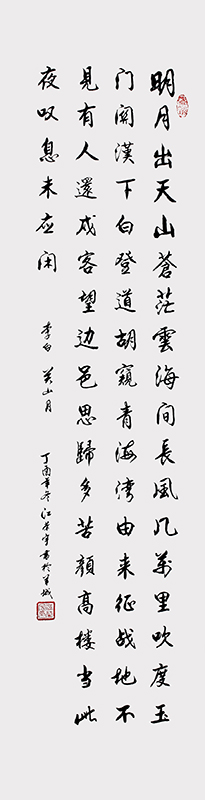 明月出天山蒼茫雲海间長風几萬里吹度玉
门関漢下白登道胡窺青海湾由来征战地不
見有人還戍客望边邑思歸多苦顏高楼当此
夜叹息未应闲
李白 关山月
丁酉年冬江宇书於羊城